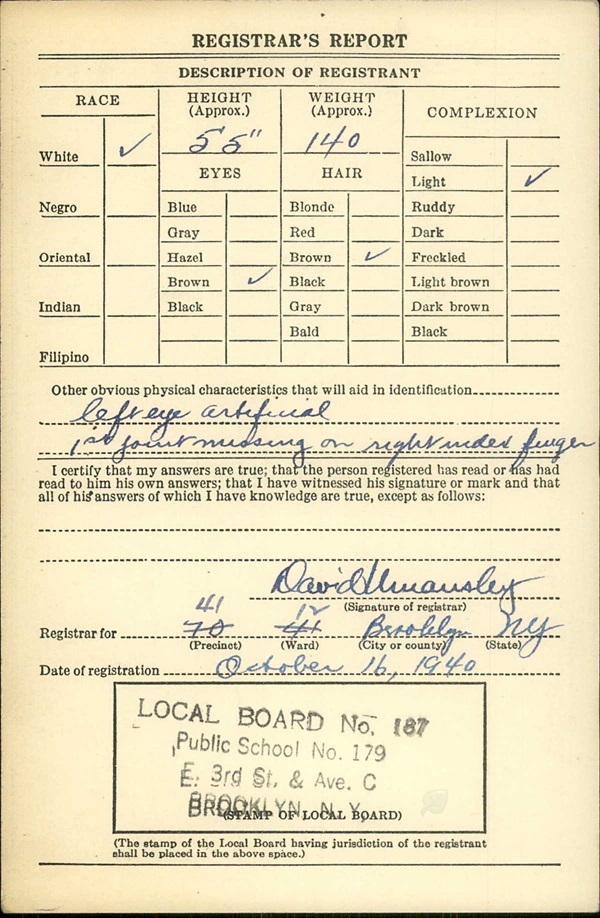 REGISTRAR'S REPORT
DESCRIPTION OF REGISTRANT
RACE
HEIGHT (Approx.)
WEIGHT (Approx.)
COMPLEXION
5'5"
140
White ✓
EYES
HAIR
Sallow
Light ✓
Negro
Blue
Blonde
Ruddy
Gray
Red
Dark
Oriental
Hazel
Brown ✓
Freckled
Brown ✓
Black
Light brown
Indian
Black
Gray
Dark brown
Bald
Black
Filipino
Other obvious physical characteristics that will aid in identification
left eye artificial
1st joint missing on right index finger
I certify that my answers are true; that the person registered has read or has had
read to him his own answers; that I have witnessed his signature or mark and that
all of his answers of which I have knowledge are true, except as follows:
David Umansley
(Signature of registrar)
41 12
Registrar for 70 41 Brooklyn NY
(Precinct) (Ward) (City or county) (State)
Date of registration October 16, 1940
LOCAL BOARD No. 187
Public School No. 179
E. 3rd St. & Ave. C
BROOKLYN, N. Y.
(STAMP OF LOCAL BOARD)
(The stamp of the Local Board having jurisdiction of the registrant
shall be placed in the above space.)